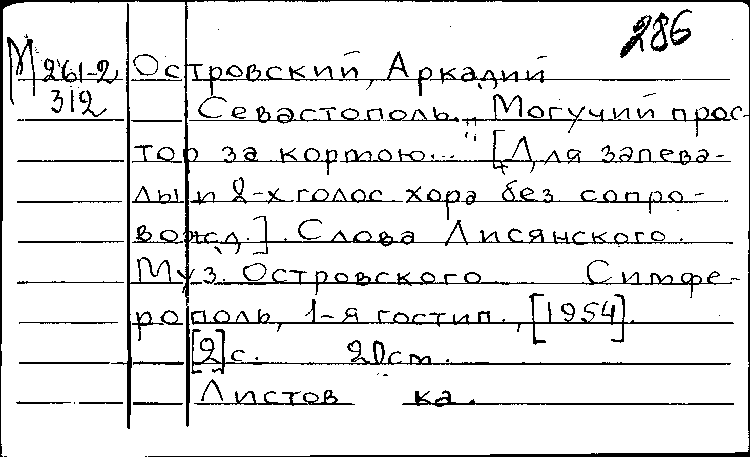 286
М 261-2 Островский, Аркадий
312 Севастополь. „Могучий прос-
тор за кормою..." [Для запева-
лы и 2-х голос хора без сопро-
вожд.]. Слова Лисянского.
Муз. Островского Симфе-
рополь, 1-я гостип., [1954].
[2]с. 20cm.
Листов ка.